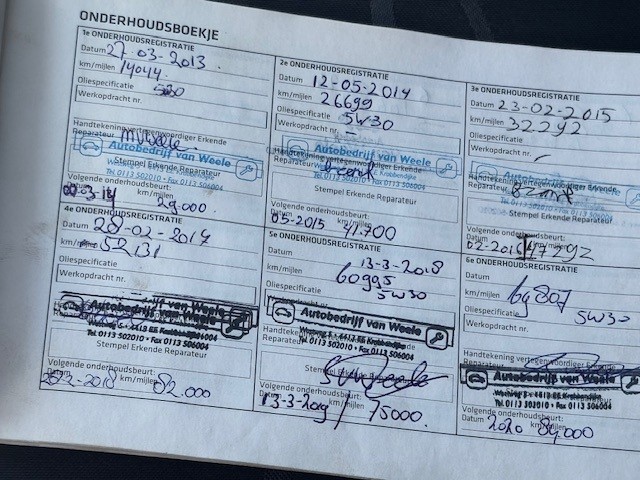 ONDERHOUDSBOEKJE
1e ONDERHOUDSREGISTRATIE
Datum 27-03-2013
km/mijlen 14044
Oliespecificatie 5W30
Werkopdracht nr.
Handtekening vertegenwoordiger Erkende
Reparateur
Autobedrijf van Weele
Stempel Erkende Reparateur
Tel. 0113 502010 • Fax 0113 506004
Volgende onderhoudsbeurt:
03-14 29.000
2e ONDERHOUDSREGISTRATIE
Datum 12-05-2014
km/mijlen 26699
Oliespecificatie 5W30
Werkopdracht nr. -
Autobedrijf van Weele
Handtekening vertegenwoordiger Erkende
Reparateur
Tel. 0113 502010 • Fax 0113 506004
Stempel Erkende Reparateur
Volgende onderhoudsbeurt:
05-2015 41.700
3e ONDERHOUDSREGISTRATIE
Datum 23-02-2015
km/mijlen 32292
Oliespecificatie
Werkopdracht nr.
Autobedrijf van Weele
Handtekening vertegenwoordiger Erkende
Reparateur
Tel. 0113 502010 • Fax 0113 506004
Stempel Erkende Reparateur
Volgende onderhoudsbeurt:
02-2016 47292
4e ONDERHOUDSREGISTRATIE
Datum 28-02-2017
km/mijlen 52131
Oliespecificatie
Werkopdracht nr.
Autobedrijf van Weele
Tel. 0113 502010 • Fax 0113 506004
Stempel Erkende Reparateur
Volgende onderhoudsbeurt:
2-2018 km/mijlen 82.000
5e ONDERHOUDSREGISTRATIE
Datum 13-3-2018
km/mijlen 60995
Oliespecificatie 5W30
Werkopdracht nr.
Autobedrijf van Weele
Tel. 0113 502010 • Fax 0113 506004
Stempel Erkende Reparateur
Volgende onderhoudsbeurt:
Datum 13-3-2019 km/mijlen 75000.
6e ONDERHOUDSREGISTRATIE
Datum
km/mijlen 69807
Oliespecificatie 5W30
Werkopdracht nr.
Handtekening vertegenwoordiger Erkende
Autobedrijf van Weele
Tel. 0113 502010 • Fax 0113 506004
Volgende onderhoudsbeurt:
Datum 2020 km/mijlen 84.000